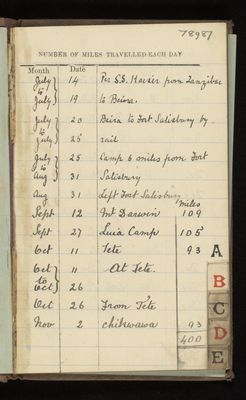 78987
NUMBER OF MILES TRAVELLED EACH DAY
Month Date
July 14 Per S.S. Herzir from Zanzibar
to
July 19 to Beira.
July 20 Beira to Fort Salisbury by
to
July 25 rail
July 25 Camp 6 miles from Fort
to
Aug 31 Salisbury
Aug 31 Left Fort Salisbury
miles
Sept 12 Mt Darwin 109
Sept 27 Luia Camp 105
Oct 11 Tete 93
Oct 11 At Tete.
to
Oct 26
Oct 26 From Tete
Nov 2 Chikwawa 93
400
A
B
C
D
E